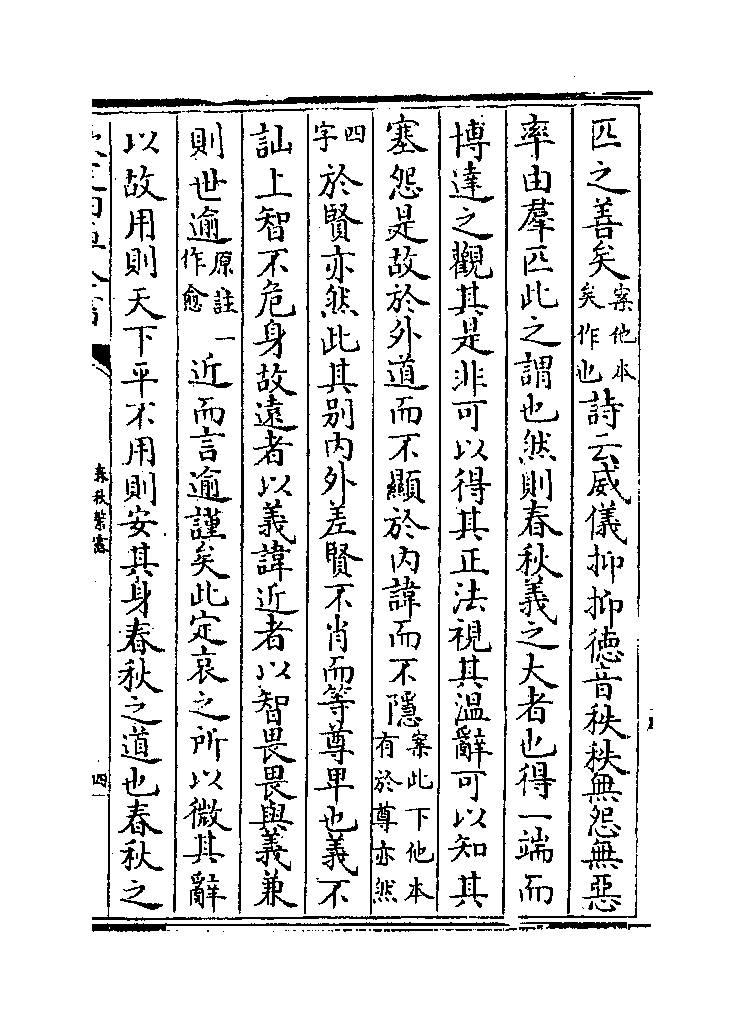 匹之善矣案他本矣作也詩云威儀抑抑德音秩秩無怨無惡
率由羣匹此之謂也然則春秋義之大者也得一端而
博達之觀其是非可以得其正法視其溫辭可以知其
塞怨是故於外道而不顯於內諱而不隱案此下他本有於尊亦然
四字於賢亦然此其別內外差賢不肖而等尊卑也義不
訕上智不危身故遠者以義諱近者以智畏畏與義兼
則世逾原註一作愈近而言逾謹矣此定哀之所以微其辭
以故用則天下平不用則安其身春秋之道也春秋之
春秋繁露
四